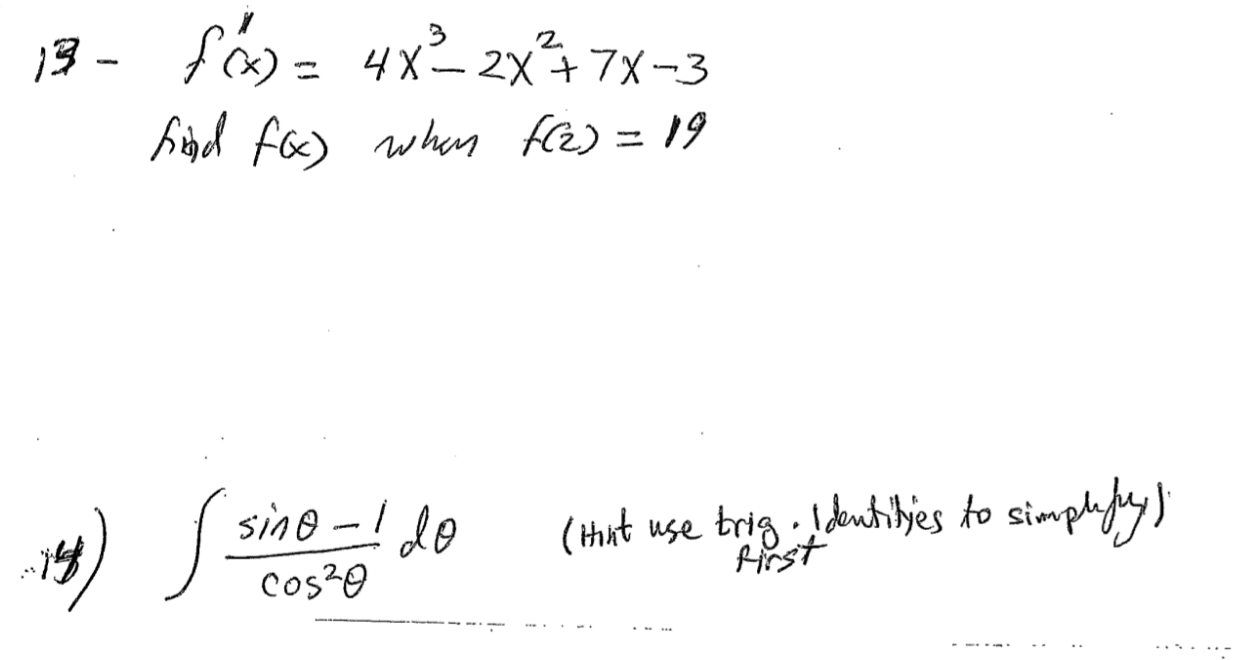 13 - f'(x) = 4x³ - 2x² + 7x - 3
find f(x) when f(2) = 19
14) ∫ (sinθ - 1)/(cos²θ) dθ (Hint use trig. Identitjes to simplify)
first